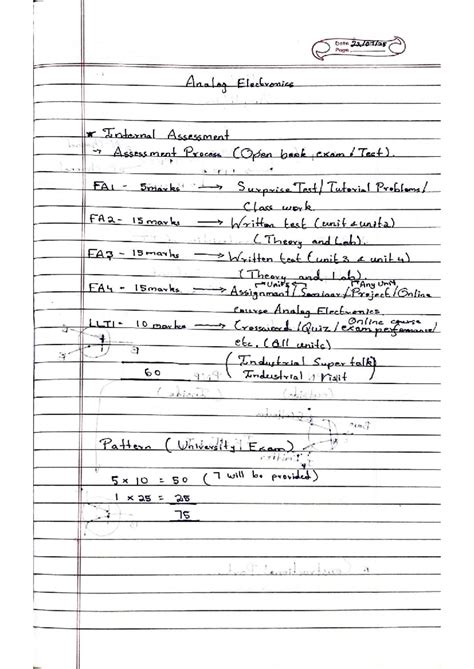 Date 22/07/25
Page
Analog Electronics
* Internal Assessment
→ Assessment Process (Open book exam / Test).
FA1 - 5marks → Surprise Test / Tutorial Problems /
Class work
FA2 - 15 marks → Written test (unit 1 & unit 2)
(Theory and Lab).
FA3 - 15 marks → Written test (unit 3 & unit 4)
(Theory and Lab).
Unit 5 Any Unit
FA4 - 15marks → Assignment / Seminar / Project / Online
course Analog Electronics
Online course
LLT1 - 10 marks → Crossword / Quiz / exam performance /
etc. (All units)
60 (Industrial Super talk
Industrial Visit)
Pattern (University Exam)
5 x 10 = 50 (7 will be provided)
1 x 25 = 25
75